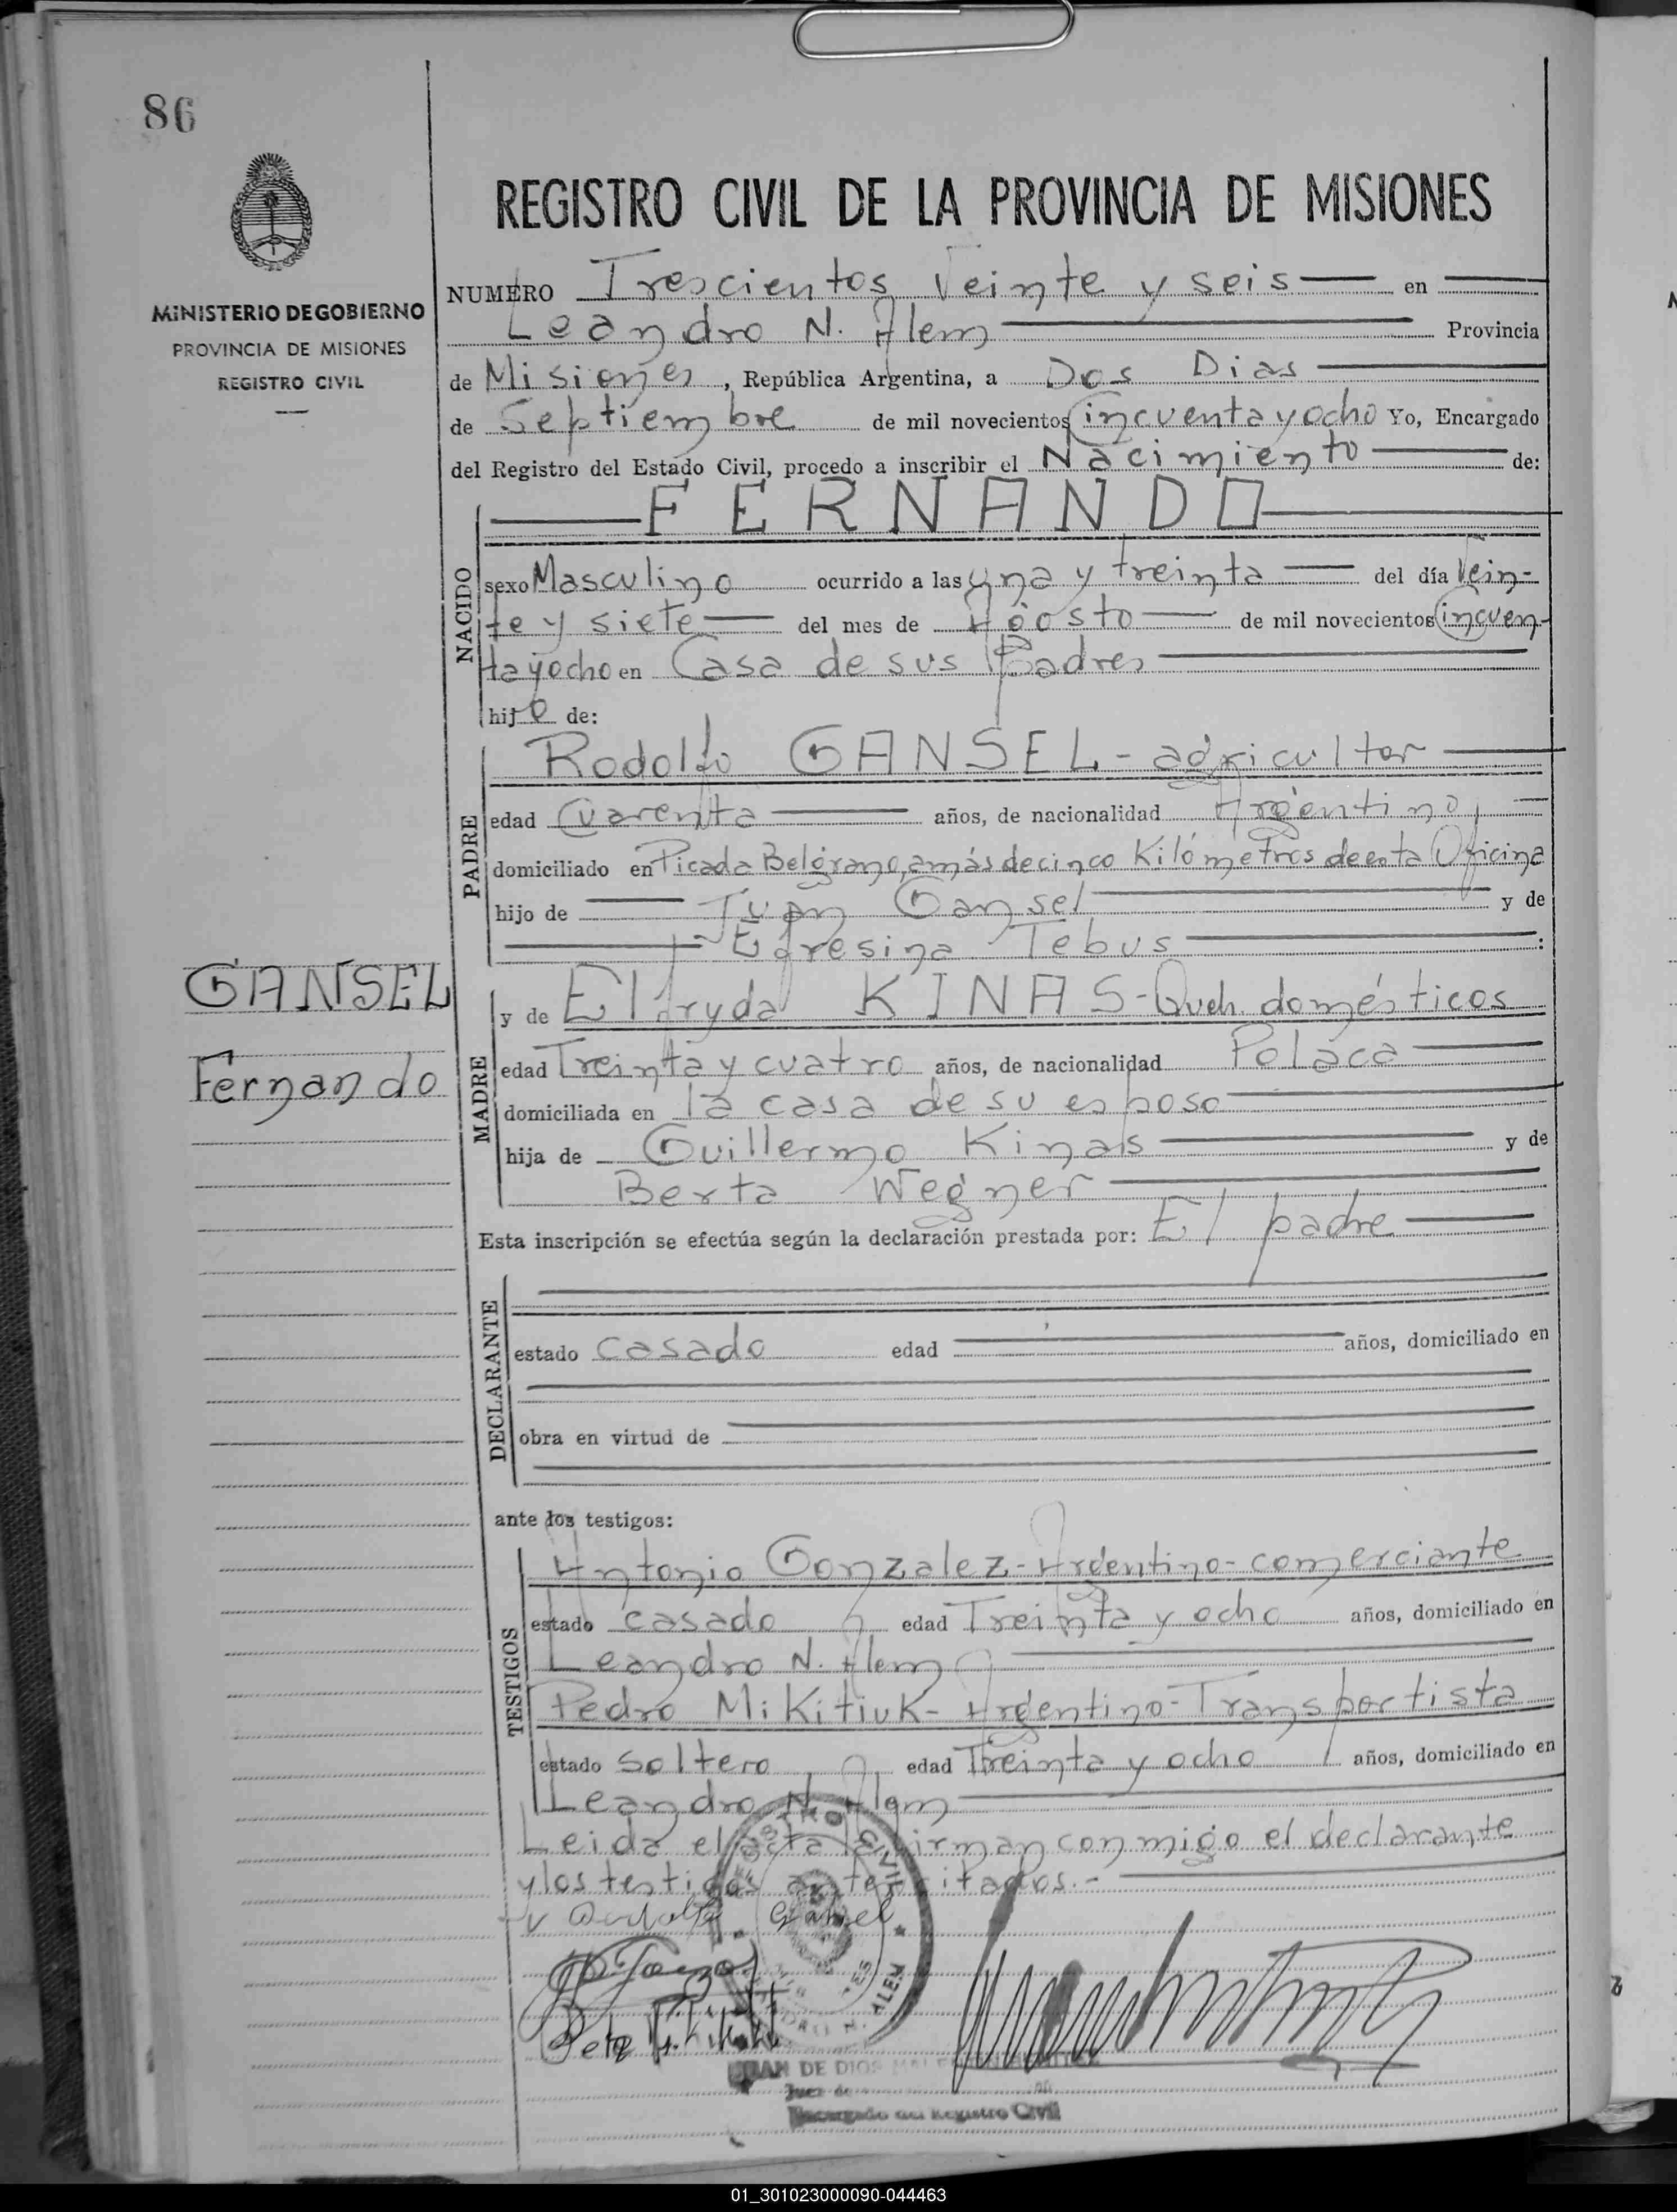 86
REGISTRO CIVIL DE LA PROVINCIA DE MISIONES
MINISTERIO DE GOBIERNO
PROVINCIA DE MISIONES
REGISTRO CIVIL
NUMERO Trescientos Veinte y seis en
Leandro N. Alem Provincia
de Misiones, República Argentina, a Dos Dias
de Septiembre de mil novecientos Cincuenta y ocho Yo, Encargado
del Registro del Estado Civil, procedo a inscribir el Nacimiento de:
FERNANDO
NACIDO
sexo Masculino ocurrido a las Una y treinta del día Vein-
te y siete del mes de Agosto de mil novecientos Cincuen-
ta y ocho en Casa de sus Padres
hijo de:
PADRE
Rodolfo GANSEL - agricultor
edad Cuarenta años, de nacionalidad Argentino,
domiciliado en Picada Belgrano, a más de cinco Kilómetros de esta Oficina
hijo de Juan Gansel y de
Efresina Tebus :
GANSEL
Fernando
MADRE
y de Elfryda KINAS - Queh. domésticos
edad Treinta y cuatro años, de nacionalidad Polaca
domiciliada en la casa de su esposo
hija de Guillermo Kinas y de
Berta Wegner
Esta inscripción se efectúa según la declaración prestada por: El padre
DECLARANTE
estado casado edad años, domiciliado en
obra en virtud de
ante los testigos:
TESTIGOS
Antonio Gonzalez - Argentino - comerciante
estado casado edad Treinta y ocho años, domiciliado en
Leandro N. Alem
Pedro MiKitiuk - Argentino - Transportista
estado soltero edad Treinta y ocho años, domiciliado en
Leandro N. Alem
Leida el acta la firman conmigo el declarante
y los testigos antes citados.-
Gansel
REGISTRO CIVIL
LEANDRO N. ALEM
JUAN DE DIOS
Juez de
Encargado del Registro Civil
01_301023000090-044463